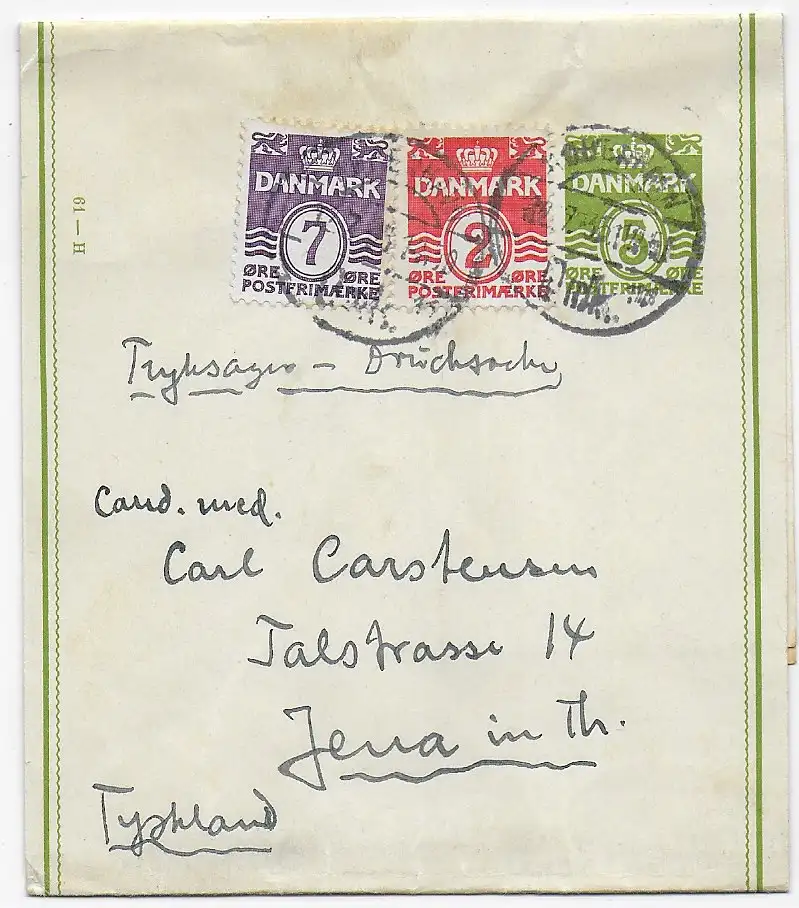 DANMARK
7
ØRE ØRE
POSTFRIMÆRKE
DANMARK
2
ØRE ØRE
POSTFRIMÆRKE
DANMARK
5
ØRE ØRE
POSTFRIMÆRKE
H — 61
Tryksager – Drucksache
Cand. med.
Carl Carstensen
Talstrasse 14
Jena in Th.
Tyskland